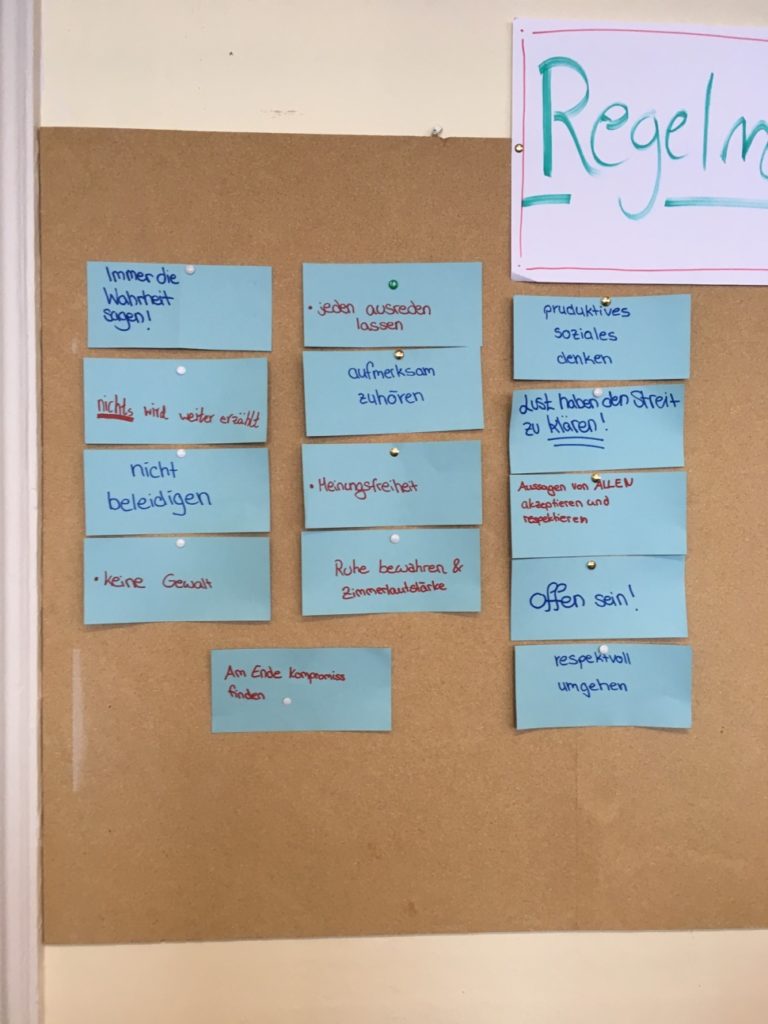 Regeln
Immer die
Wahrheit
sagen!
nichts wird weiter erzählt
nicht
beleidigen
• keine Gewalt
• jeden ausreden
lassen
aufmerksam
zuhören
• Meinungsfreiheit
Ruhe bewahren &
Zimmerlautstärke
pruduktives
soziales
denken
Lust haben den Streit
zu klären!
Aussagen von ALLEN
akzeptieren und
respektieren
Offen sein!
respektvoll
umgehen
Am Ende Kompromiss
finden